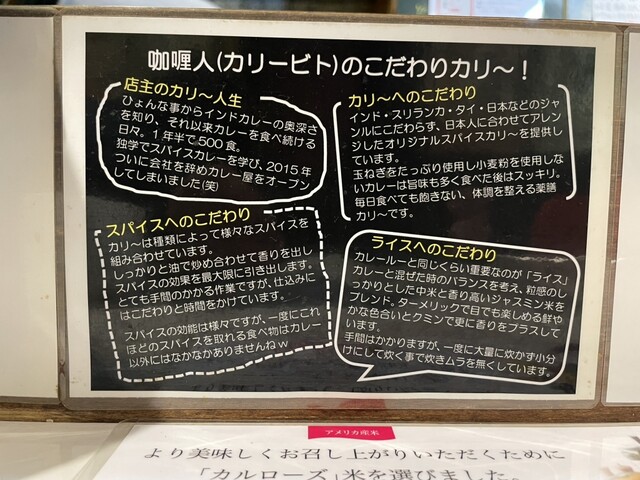 咖喱人(カリービト)のこだわりカリ～！
店主のカリ～人生
ひょんな事からインドカレーの奥深さ
を知り、それ以来カレーを食べ続ける
日々。１年半で500食。
独学でスパイスカレーを学び、2015年
ついに会社を辞めカレー屋をオープン
してしまいました(笑)
カリ～へのこだわり
インド・スリランカ・タイ・日本などのジャ
ンルにこだわらず、日本人に合わせてアレン
ジしたオリジナルスパイスカリ～を提供し
ています。
玉ねぎをたっぷり使用し小麦粉を使用しな
いカレーは旨味も多く食べた後はスッキリ。
毎日食べても飽きない、体調を整える薬膳
カリ～です。
スパイスへのこだわり
カリ～は種類によって様々なスパイスを
組み合わせています。
しっかりと油で炒め合わせて香りを出し
スパイスの効果を最大限に引き出します。
とても手間のかかる作業ですが、仕込みに
はこだわりと時間をかけています。
スパイスの効能は様々ですが、一度にこれ
ほどのスパイスを取れる食べ物はカレー
以外にはなかなかありませんねｗ
ライスへのこだわり
カレールーと同じくらい重要なのが「ライス」
カレーと混ぜた時のバランスを考え、粒感のし
っかりとした中米と香り高いジャスミン米を
ブレンド。ターメリックで目でも楽しめる鮮や
かな色合いとクミンで更に香りをプラスして
います。
手間はかかりますが、一度に大量に炊かず小分
けにして炊く事で炊きムラを無くしています。
アメリカ産米
より美味しくお召し上がりいただくために
「カルローズ」米を選びました。